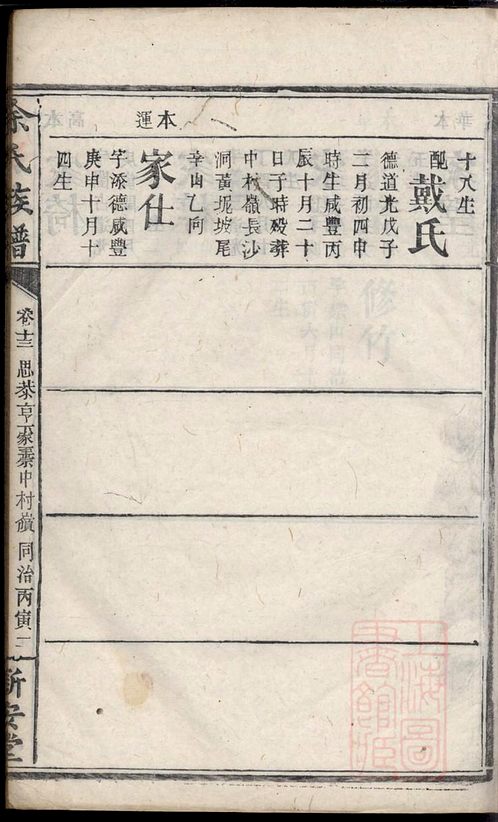 十八生
配戴氏
德道光戊子
二月初四申
時生咸豐丙
辰十月二十
日子時歿葬
中村嶺長沙
洞黃坭坡尾
辛山乙向
本運
家仕
字添德咸豐
庚申十月十
四生
余氏族譜
卷十三
中村嶺
同治丙寅
新安堂
上海圖書館藏